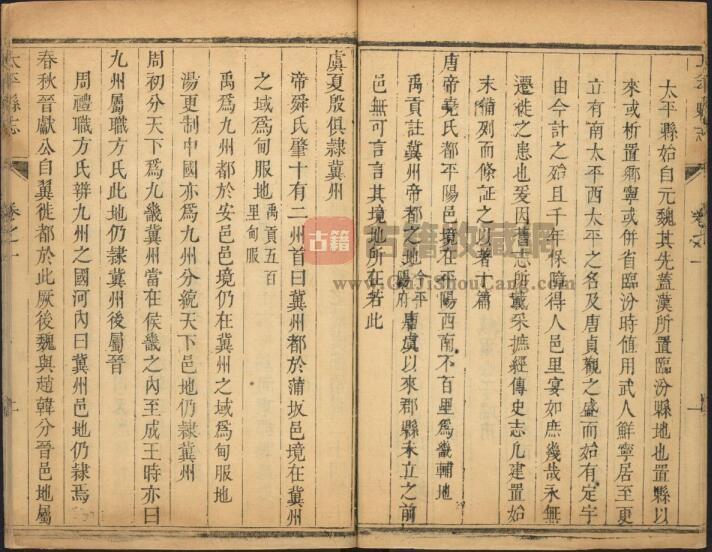 太平縣始自元魏其先蓋漢所置臨汾縣地也置縣以
來或析置鄉寧或併省臨汾時值用武人鮮寧居至更
立有南太平西太平之名及唐貞觀之盛而始有定宇
由今計之始且千年保障得人邑里宴如庶幾哉永無
遷徙之患也爰因舊志所載采摭經傳史志凡建置始
末備列而條証之以著十篇
唐帝堯氏都平陽邑境在平陽西南不百里爲畿輔地
禹貢註冀州帝都之地今平陽府唐虞以來郡縣未立之前
邑無可言言其境地所在若此
虞夏殷俱隸冀州
帝舜氏肇十有二州首曰冀州都於蒲坂邑境在冀州
之域爲甸服地禹貢五百里甸服
禹爲九州都於安邑邑境仍在冀州之域爲甸服地
湯更制中國亦爲九州分統天下邑地仍隸冀州
周初分天下爲九畿冀州當在侯畿之內至成王時亦曰
九州屬職方氏此地仍隸冀州後屬晉
周禮職方氏辨九州之國河內曰冀州邑地仍隸焉
春秋晉獻公自翼徙都於此厥後魏與趙韓分晉邑地屬
太平縣志
卷之一
古籍
古籍收藏网
www.GuJiShouCang.com